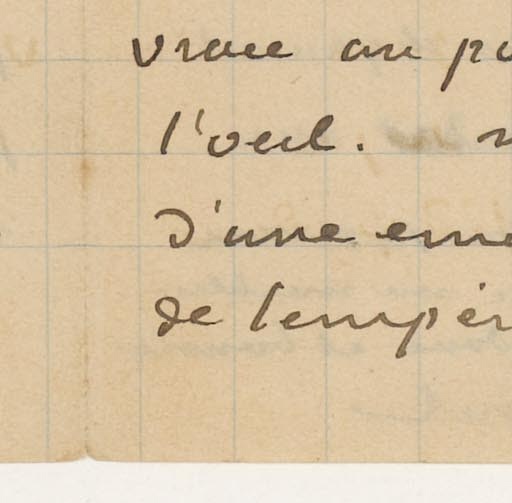 vraie au po
l'oeil.
D'une emo
de tempér